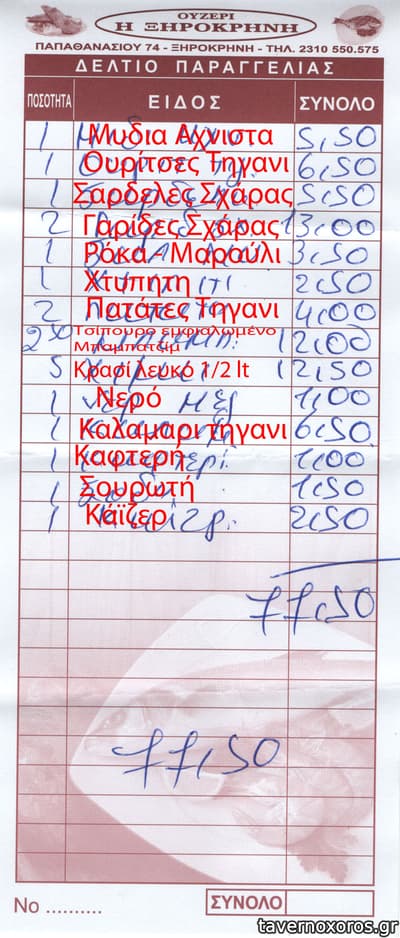 ΟΥΖΕΡΙ
Η ΞΗΡΟΚΡΗΝΗ
ΠΑΠΑΘΑΝΑΣΙΟΥ 74 - ΞΗΡΟΚΡΗΝΗ - ΤΗΛ. 2310 550.575
ΔΕΛΤΙΟ ΠΑΡΑΓΓΕΛΙΑΣ
ΠΟΣΟΤΗΤΑ ΕΙΔΟΣ ΣΥΝΟΛΟ
1 Μυδια Αχνιστα 5,50
1 Ουρίτσες Τηγανι 6,50
1 Σαρδελες Σχάρας 5,50
2 Γαρίδες Σχάρας 13,00
1 Ρόκα - Μαρουλι 3,50
1 Χτυπητη 2,50
2 Πατάτες Τηγανι 4,00
2 50 Τσίπουρο εμφιαλωμένο 12,00
Μπαμπατζίμ
5 Κρασί λευκό 1/2 lt 12,50
1 Νερό 1,00
1 Καλαμαρι τηγανι 6,50
1 Καφτερή 1,00
1 Σουρωτή 1,50
1 Κάϊζερ 2,50
77,50
77,50
Νο .......... ΣΥΝΟΛΟ
tavernoxoros.gr